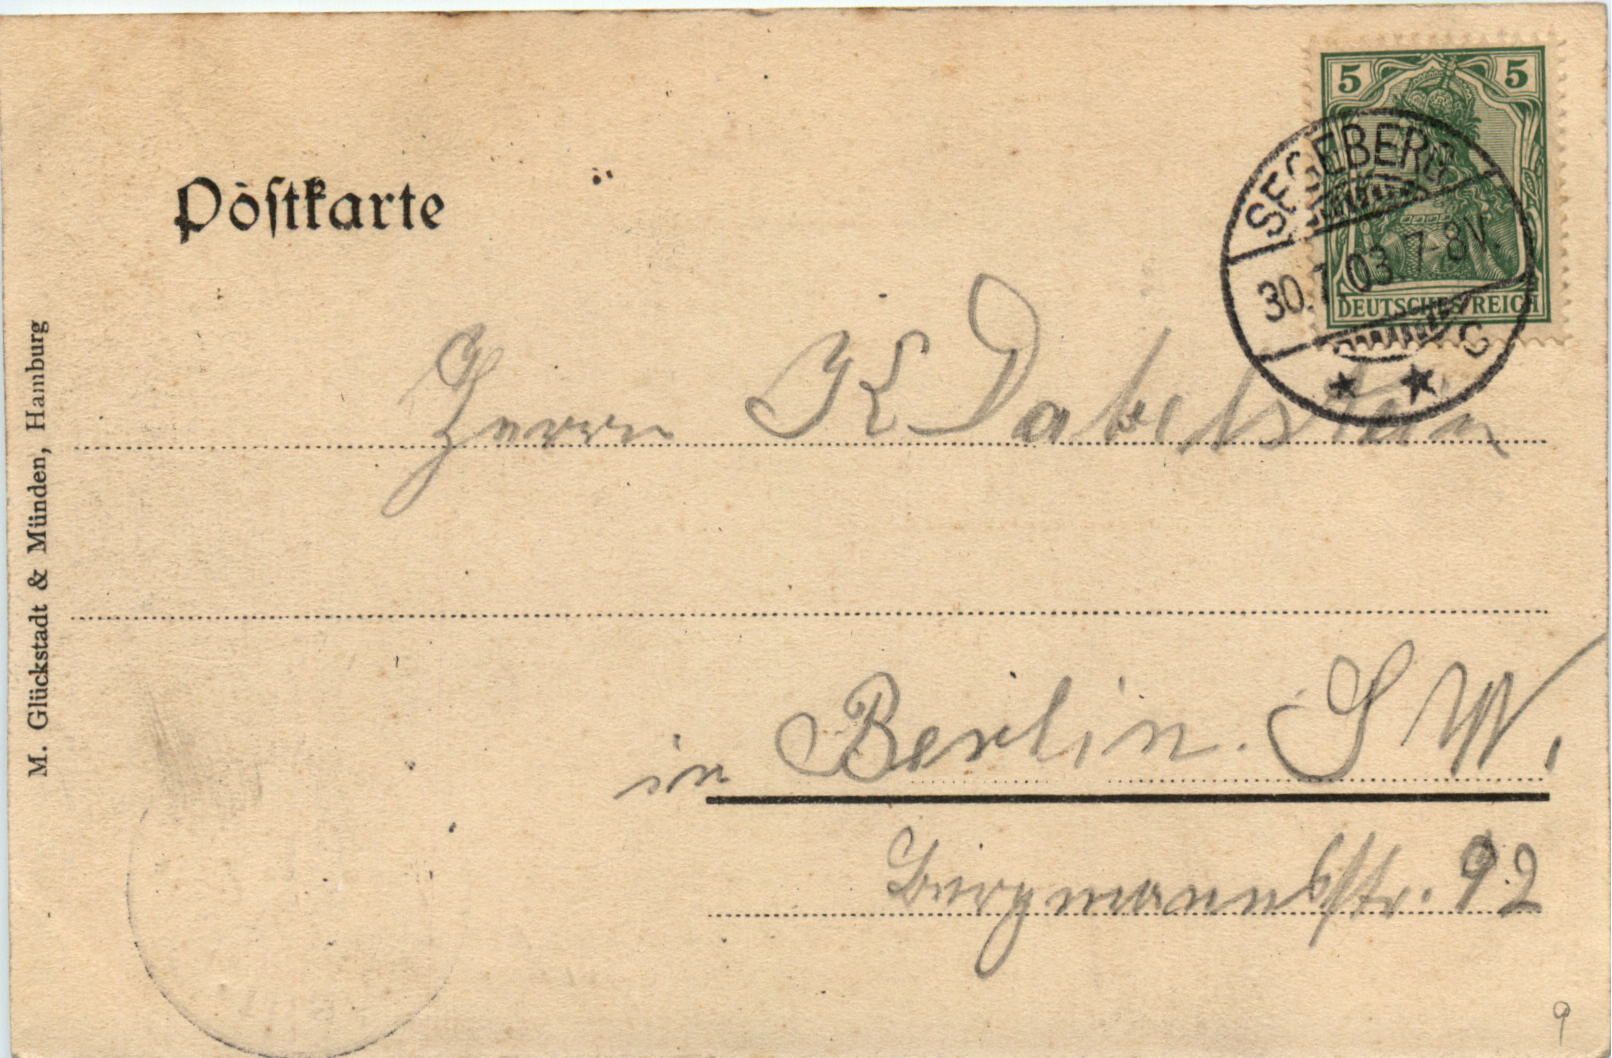 5 5
SEGEBERG
30.7.03.7-8V.
DEUTSCHES REICH
Postkarte
M. Glückstadt & Münden, Hamburg
Herrn K Dabelstein
in Berlin. S W.
Bergmannsstr. 92
9